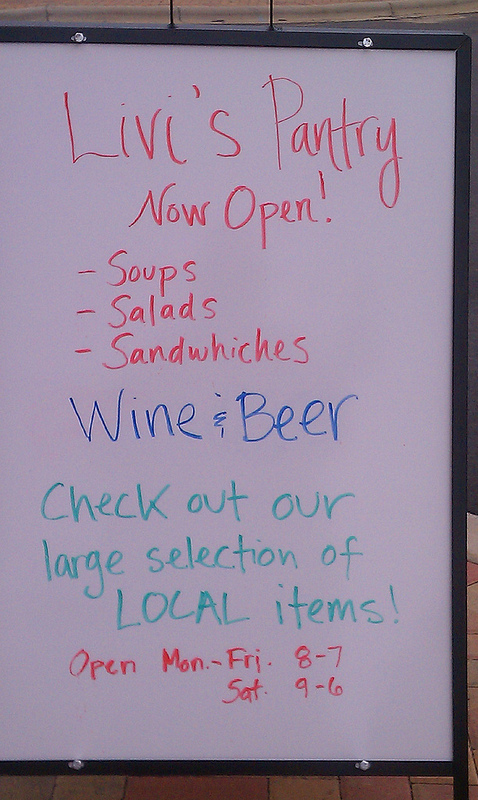 Livi's Pantry
Now Open!
- Soups
- Salads
- Sandwhiches
Wine & Beer
Check out our
large selection of
LOCAL items!
Open Mon.-Fri. 8-7
Sat. 9-6